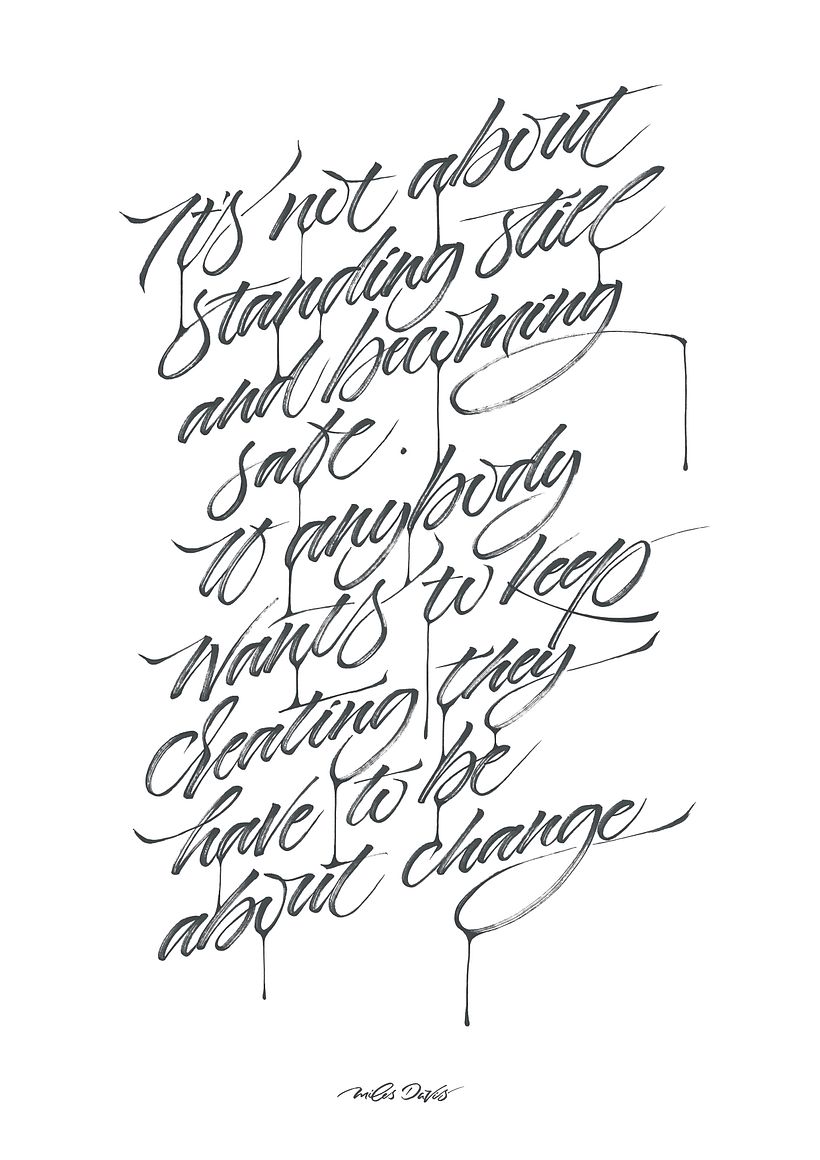 It's not about
standing still
and becoming
safe.
If anybody
wants to keep
creating they
have to be
about change
Miles Davis